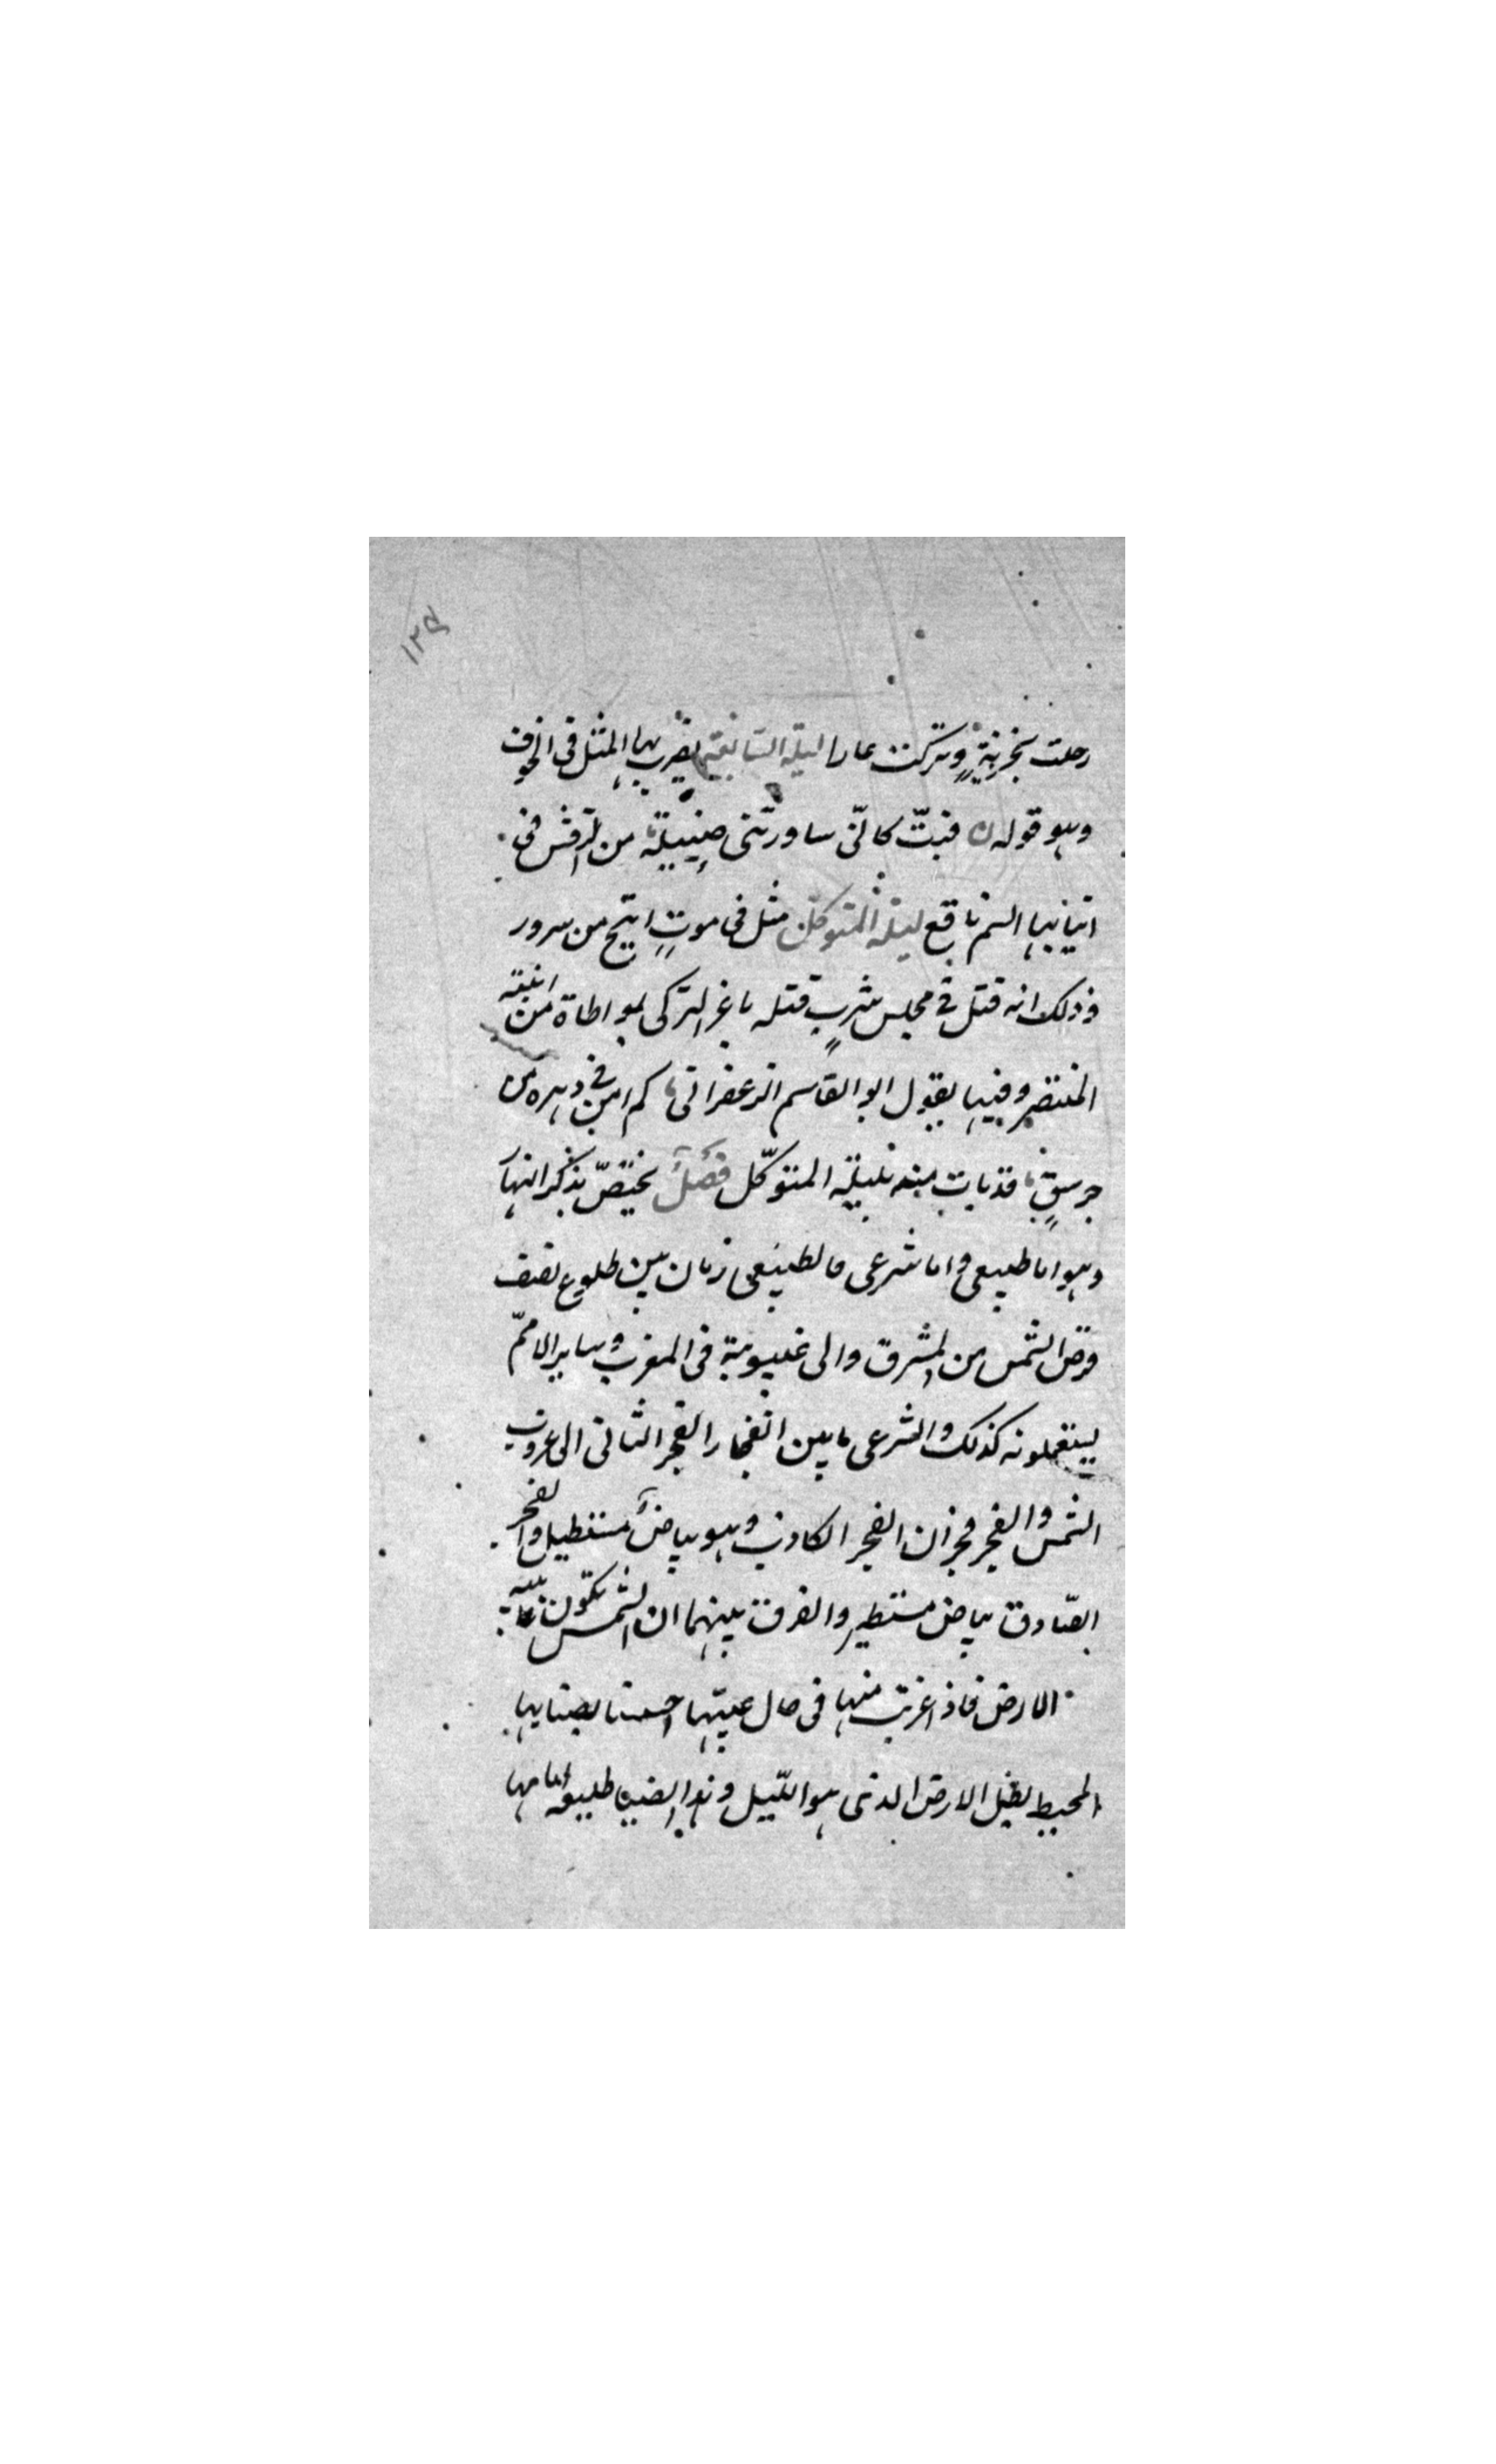 ١٢٤
رحلت بخزيةٍ وتركت عارا ليلة النابغة يضرب بها المثل فى الخوف
وهو قوله فبتّ كانّى ساورتنى ضئيلة من الرقش فى
انيابها السم ناقع ليلة المتوكل مثل فى موتٍ انتج من سرور
وذلك انه قتل فى مجلس شربٍ قتله باغر التركى بمواطاة من ابنه
المنتصر وفيها يقول ابو القاسم الزعفرانى كم امن فى دهره من
جوسقٍ قد بات منه بليلة المتوكّل فصل يختصّ بذكر النهار
وهو اما طبيعى واما شرعى فالطبيعى زمان بين طلوع نصف
قرص الشمس من المشرق والى غيبوبة فى المغرب وساير الامم
يستعملونه كذلك والشرعى ما بين انفجار الفجر الثانى الى غروب
الشمس والفجر فجران الفجر الكاذب وهو بياض مستطيل والفجر
الصّادق بياض مستطير والفرق بينهما ان الشمس تكون
الارض فاذا غربت منها فى حال غيبتها احسسنا بضيايها
المحيط بظل الارض الذى هو الليل وهذا الضيا طليعة امامها